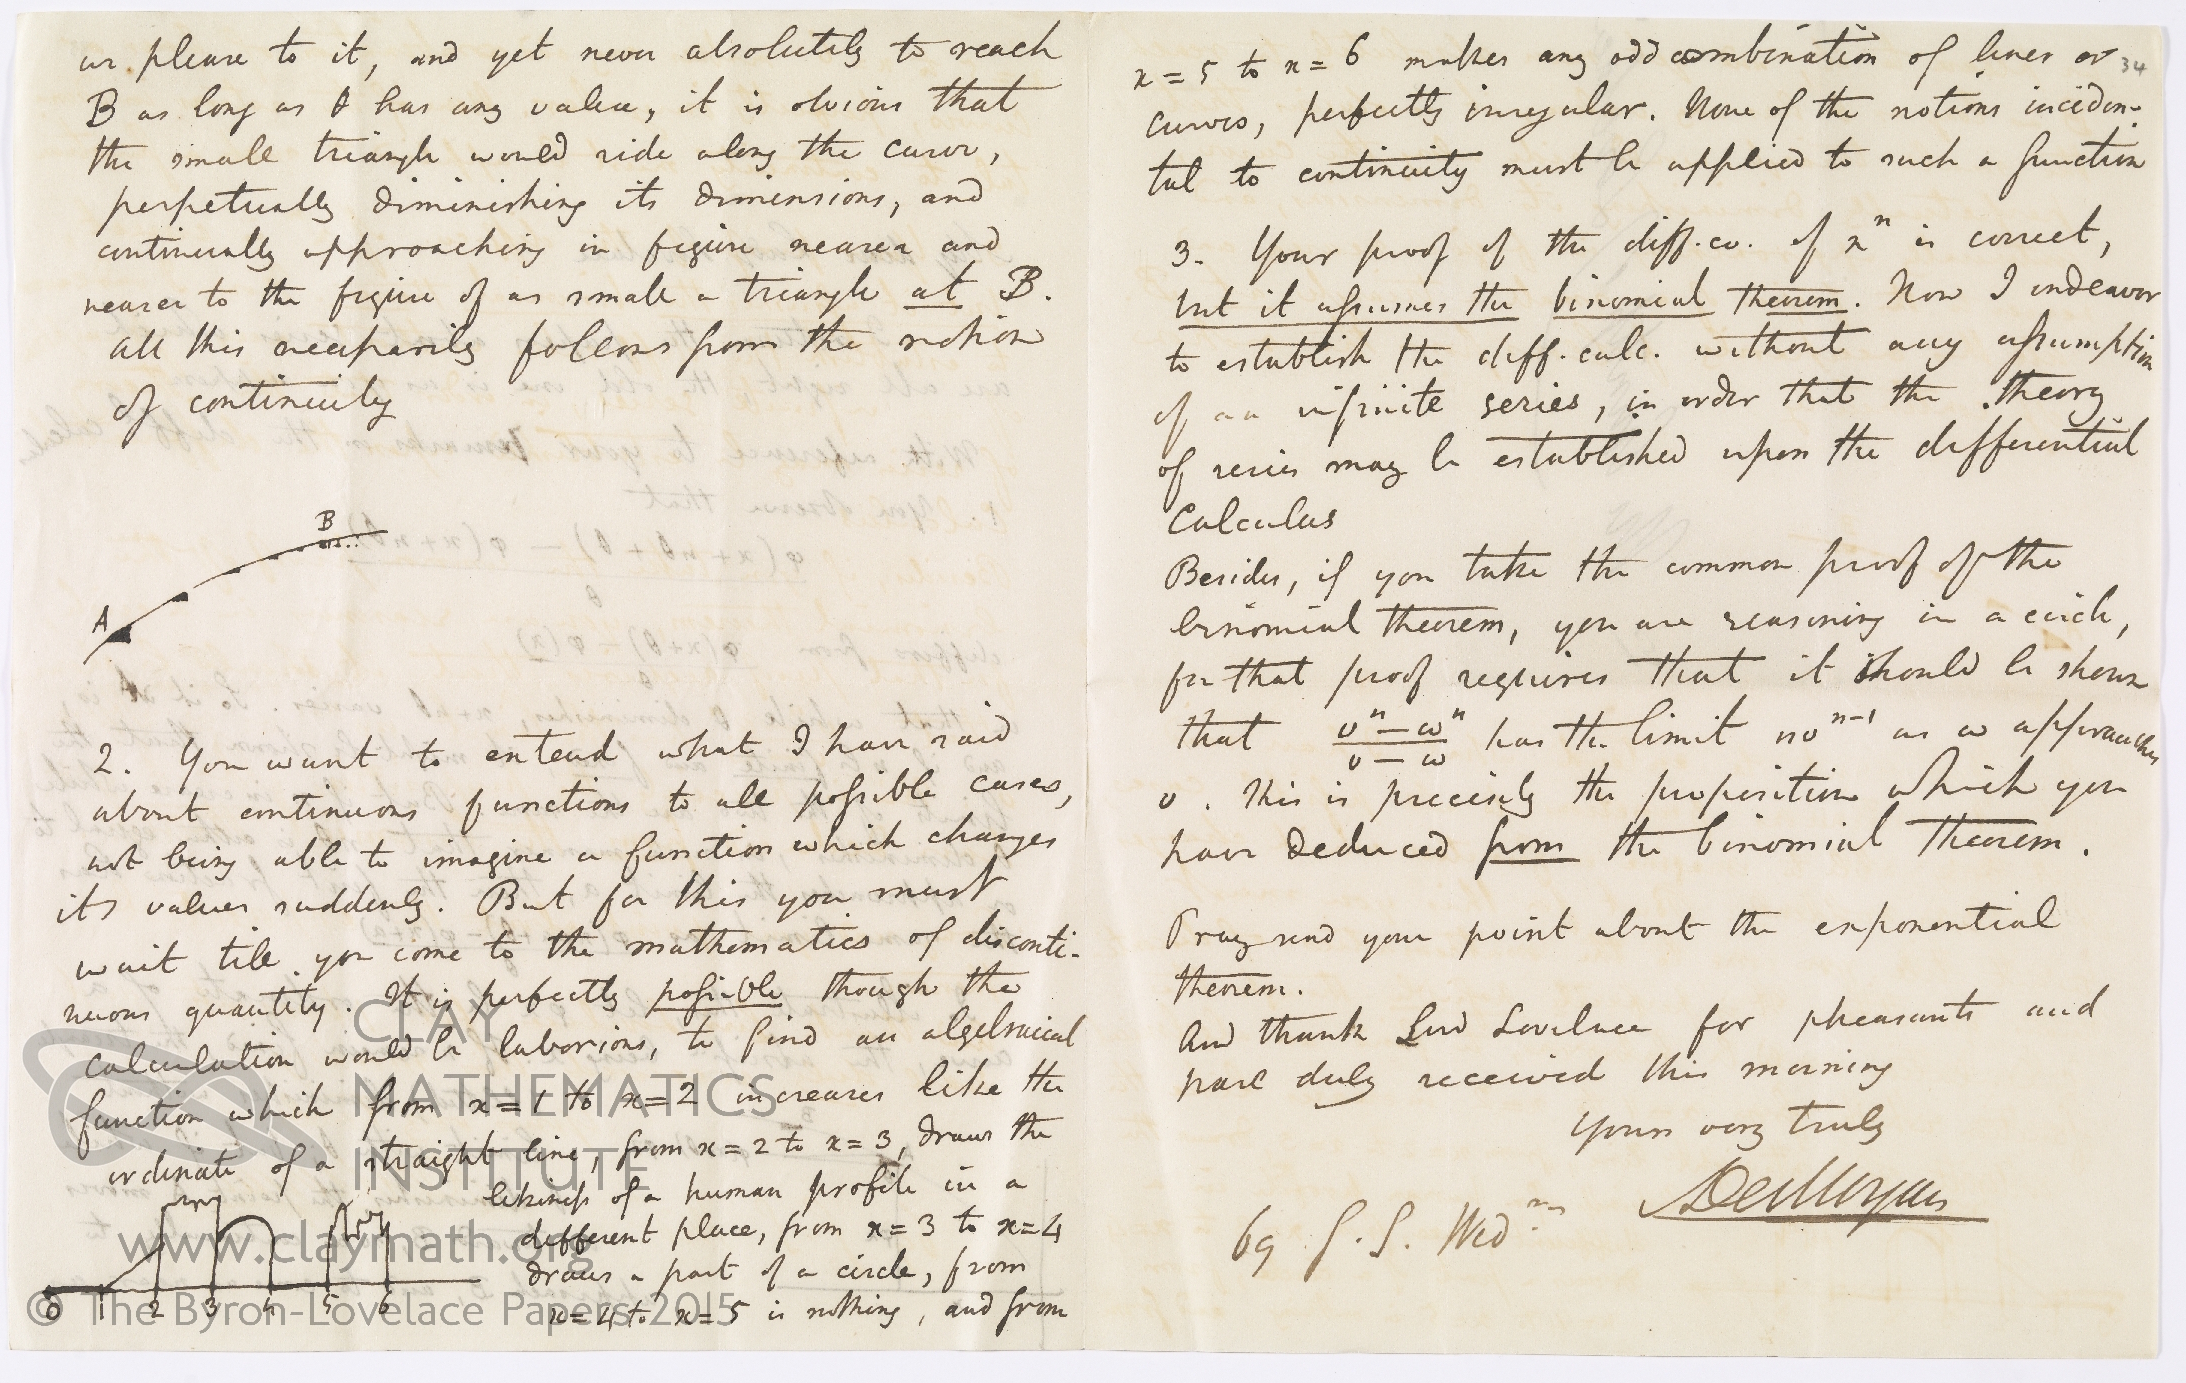 we please to it, and yet never absolutely to reach
B as long as θ has any value, it is obvious that
the small triangle would ride along the curve,
perpetually diminishing its dimensions, and
continually approaching in figure nearer and
nearer to the figure of as small a triangle at B.
All this necessarily follows from the notion
of continuity
B
A
2. You want to extend what I have said
about continuous functions to all possible cases,
not being able to imagine a function which changes
its values suddenly. But for this you must
wait till you come to the mathematics of disconti-
nuous quantity. It is perfectly possible though the
calculation would be laborious, to find an algebraical
function which from x=1 to x=2 increases like the
ordinate of a straight line, from x=2 to x=3, draws the
likeness of a human profile in a
different place, from x=3 to x=4
draws a part of a circle, from
x=4 to x=5 is nothing, and from
0 1 2 3 4 5 6
34
x=5 to x=6 makes any odd combination of lines or
curves, perfectly irregular. None of the notions inciden-
tal to continuity must be applied to such a function
3. Your proof of the diff. co. of xⁿ is correct,
but it assumes the binomial theorem. Now I endeavor
to establish the diff. calc. without any assumption
of an infinite series, in order that the theory
of series may be established upon the differential
Calculus
Besides, if you take the common proof of the
binomial theorem, you are reasoning in a circle,
for that proof requires that it should be shown
that (vⁿ − wⁿ)/(v − w) has the limit nvⁿ⁻¹ as w approaches
v. This is precisely the proposition which you
have deduced from the binomial theorem.
Pray send your point about the exponential
theorem.
And thank Lord Lovelace for pheasants and
hare duly received this morning
Yours very truly
ADeMorgan
69 G. S. Wed
CLAY
MATHEMATICS
INSTITUTE
www.claymath.org
© The Byron-Lovelace Papers 2015